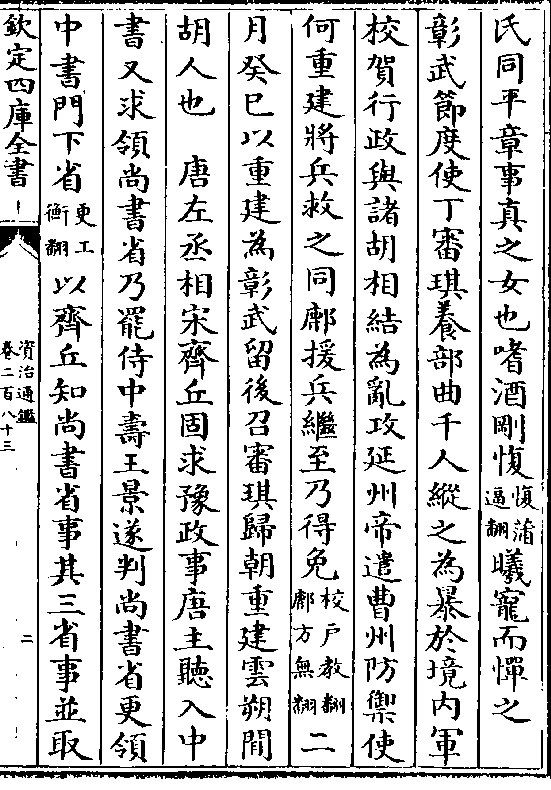 氏同平章事真之女也嗜酒剛愎愎蒲逼翻曦寵而憚之
彰武節度使丁審琪養部曲千人縱之為暴於境内軍
校賀行政與諸胡相結為亂攻延州帝遣曹州防禦使
何重建將兵救之同鄜援兵繼至乃得免校戶教翻鄜方無翻二
月癸巳以重建為彰武留後召審琪歸朝重建雲朔間
胡人也　唐左丞相宋齊丘固求豫政事唐主聽入中
書又求領尚書省乃罷侍中壽王景遂判尚書省更領
中書門下省更工衡翻以齊丘知尚書省事其三省事並取
欽定四庫全書
資治通鑑
卷二百八十三
二